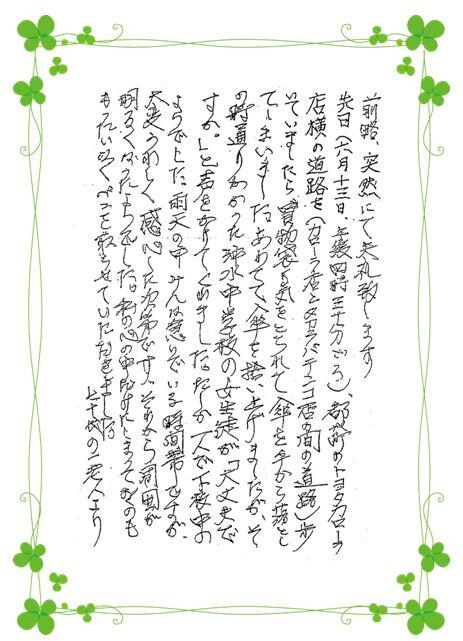 前略、突然にて失礼致します
先日(六月十三日、午後四時三十分ごろ)、都北町のトヨタカローラ
店横の道路を(カローラ店とタカラパチンコ店の間の道路)歩
いていましたら、買物袋に気をとられて、傘を手から落とし
てしまいました。あわてて、傘を拾い上げましたが、そ
の時通りかかった沖水中学校の女生徒が「大丈夫で
すか。」と声をかけてくれました。たしか二人が下校中の
ようでした。雨天の中みんな急いでいる時間帯ですのが、
大変うれしく、感心した次第です。それから周囲が
明るくなったようでした。私の心の中だけにしまっておくのも
もったいなく、ペンを取らせていただきました。
七十代の一老人より